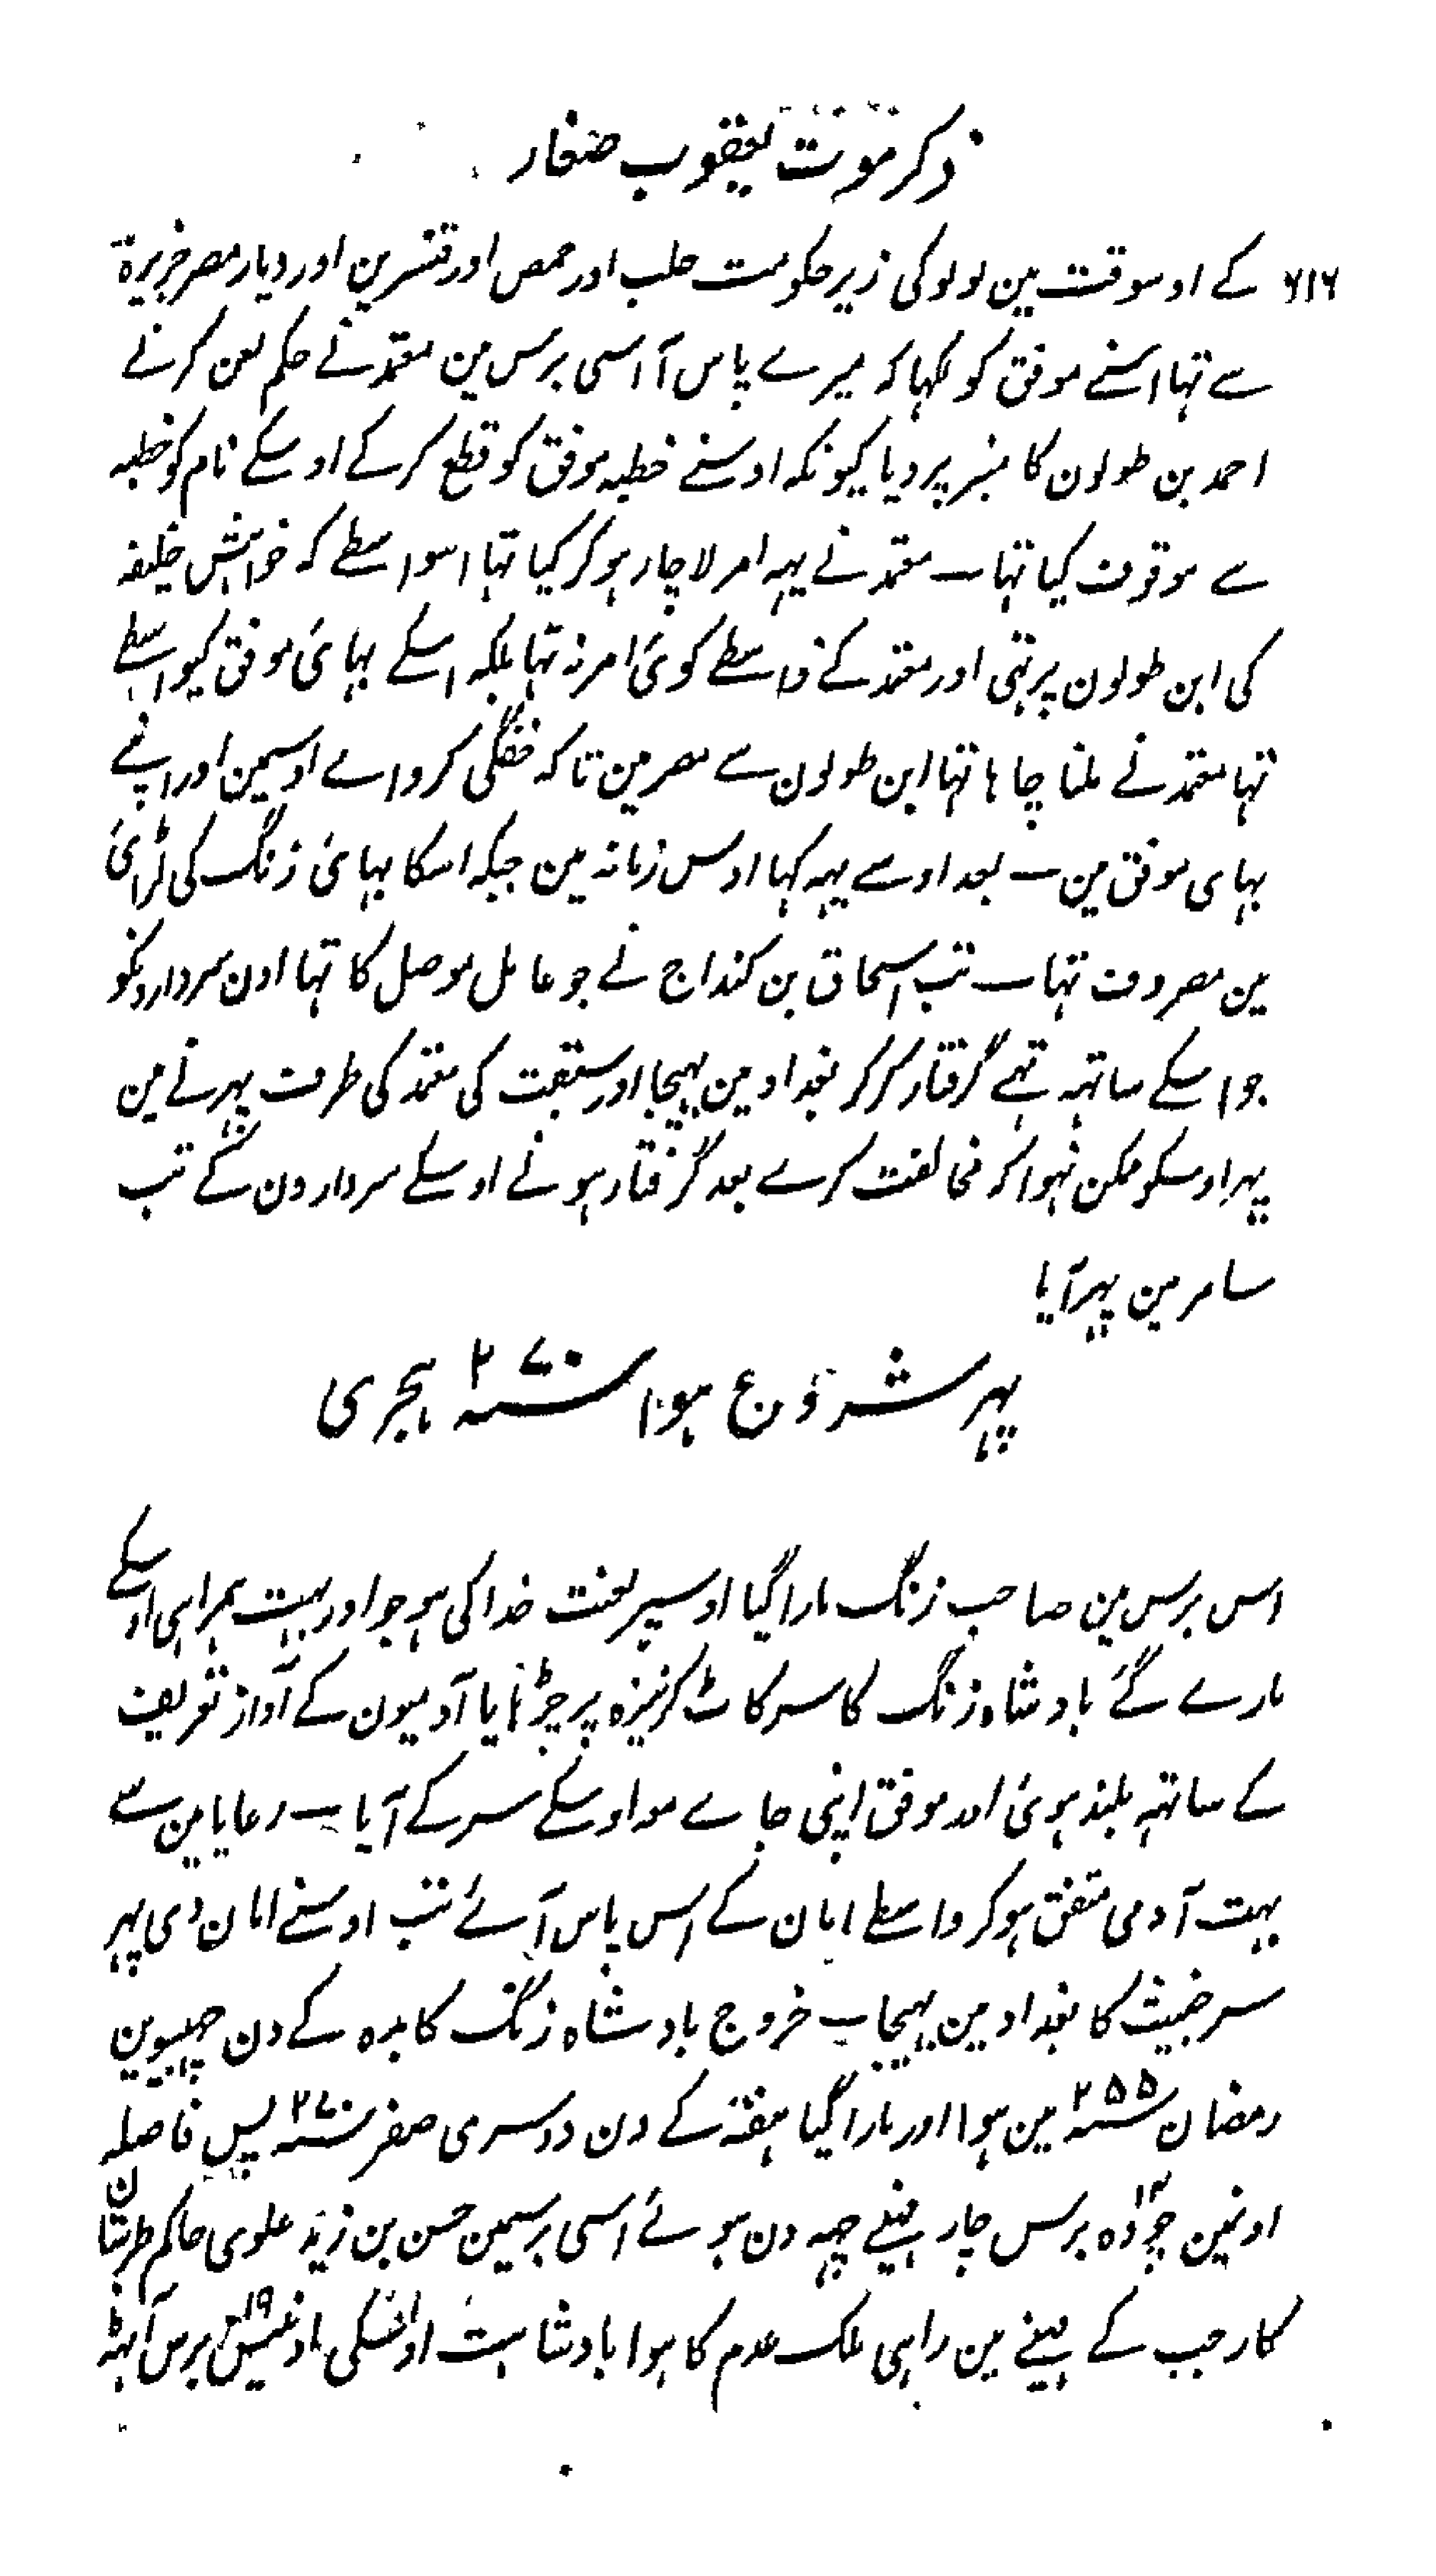 ذکر موت یعقوب صفار
۶۱۶ کے اوسوقت مین لولو کی زیر حکومت حلب اور حمص اور قنسرین اور دیار مصر جزیرۃ
سے تہا اسنے موفق کو لکہا کہ میرے پاس آ اسی برس مین معتمد نے حکم لعن کرنے
احمد بن طولون کا منبر پر دیا کیونکہ اوسنے خطبہ موفق کو قطع کرکے اوسکے نام کو خطبہ
سے موقوف کیا تہا ــ معتمد نے یہہ امر لاچار ہوکر کیا تہا اسواسطے کہ خواہش خلیفہ
کی ابن طولون پر تہی اور معتمد کے واسطے کوئی امر نہ تہا بلکہ اسکے بہائی موفق کیواسطے
تہا معتمد نے ملنا چاہا تہا ابن طولون سے مصر مین تاکہ خفگی کروائے اوسمین اور اپنے
بہای موفق مین ــ بعد اوسے یہہ کہا اوس زمانہ مین جبکہ اسکا بہائی زنگ کی لڑائی
مین مصروف تہا ــ تب اسحاق بن کنداج نے جو عامل موصل کا تہا اون سردارونکو
جو اسکے ساتہہ تہے گرفتار کرکر بغداد مین بہیجا اور سبقت کی معتمد کی طرف پہرنے مین
پہر اوسکو ممکن نہوا کہ مخالفت کرے بعد گرفتار ہونے اوسکے سردارون کے تب
سامر مین پہر آیا
پہر شروع ہوا سنہ ۲۷۰ ہجری
اس برس مین صاحب زنگ مارا گیا اوسپر لعنت خدا کی ہو جو اور بہت ہمراہی اوسکے
مارے گئے بادشاہ زنگ کا سر کاٹ کر نیزہ پر چڑہایا آدمیون کے آواز تعریف
کے ساتہہ بلند ہوئی اور موفق اپنی جاے مہ اوسکے سر کے آیا ــ رعایا مین سے
بہت آدمی متفق ہوکر واسطے امان کے اس پاس آئے تب اوسنے امان دی پہر
سر خبیث کا بغداد مین بہیجا ــ خروج بادشاہ زنگ کا بدہ کے دن چہبیسوین
رمضان سنہ ۲۵۵ مین ہوا اور مارا گیا ہفتہ کے دن دوسری صفر سنہ ۲۷۰ پس فاصلہ
اونمین چودہ ۱۴ برس چار مہینے چہہ دن ہوئے اسی برسمین حسن بن زید علوی حاکم طبرستان
کا رجب کے مہینے مین راہی ملک عدم کا ہوا بادشاہت اوسکی اونیس ۱۹ برس آٹہہ